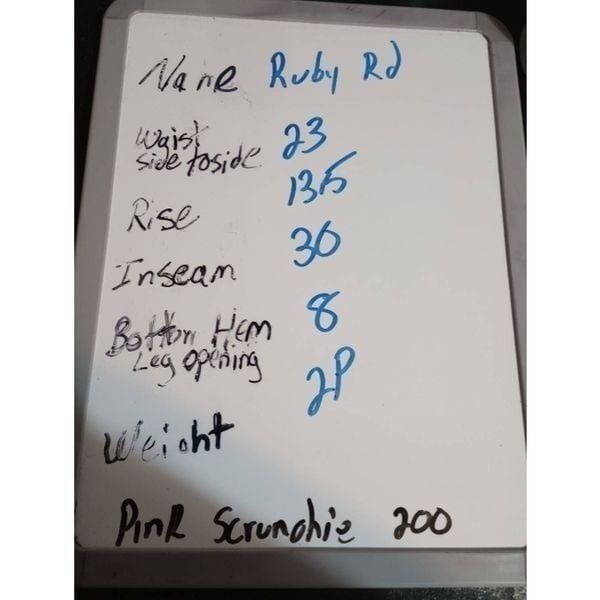 Name Ruby Rd
Waist
side to side 23
Rise 13.5
Inseam 30
Bottom Hem
Leg opening 8
Weight 2P
Pink Scrunchie 200